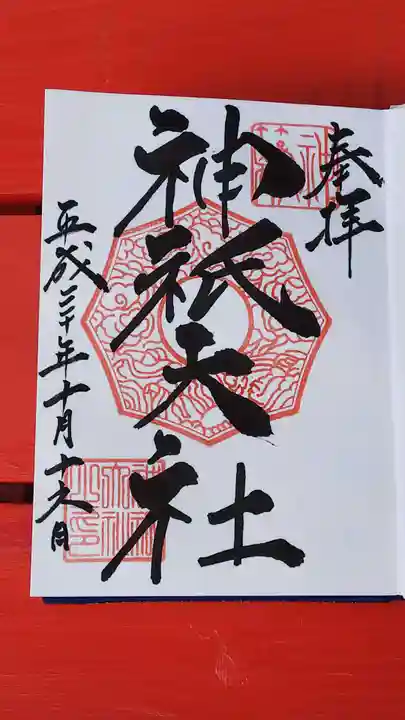 奉拝
神祇大社
平成三十年十月十六日